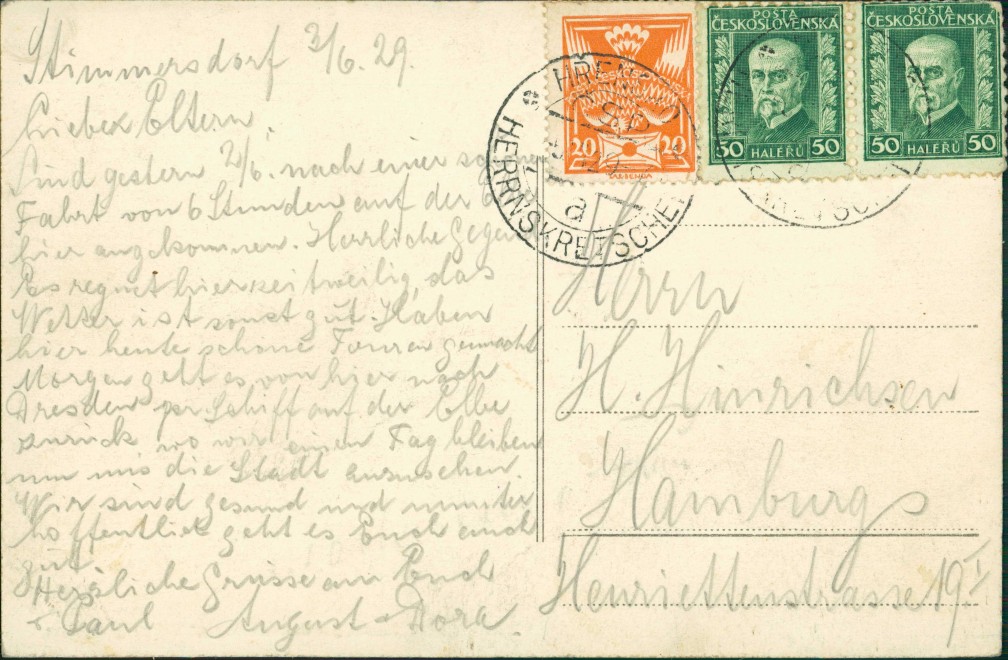 Stimmersdorf 3/6. 29.
Lieben Eltern,
Sind gestern 2/6. nach einer schönen
Fahrt von 6 Stunden auf der
hier angekommen. Herrliche Gegend
Es regnet hier zeitweilig, das
Wetter ist sonst gut. Haben
hier heute schöne Touren gemacht
Morgen geht es von hier nach
Dresden per Schiff auf der Elbe
zurück wo wir einen Tag bleiben
um uns die Stadt anzusehen
Wir sind gesund und munter
hoffentlich geht es Euch auch
gut.
Herzliche Grüsse an Euch
Paul August Dora.
POSTA
ČESKOSLOVENSKÁ
50 HALÉŘŮ 50
POSTA
ČESKOSLOVENSKÁ
50 HALÉŘŮ 50
20 20
HERRNSKRETSCHEN
a
Herrn
H. Hinrichsen
Hamburg
Henriettenstrasse 19 I